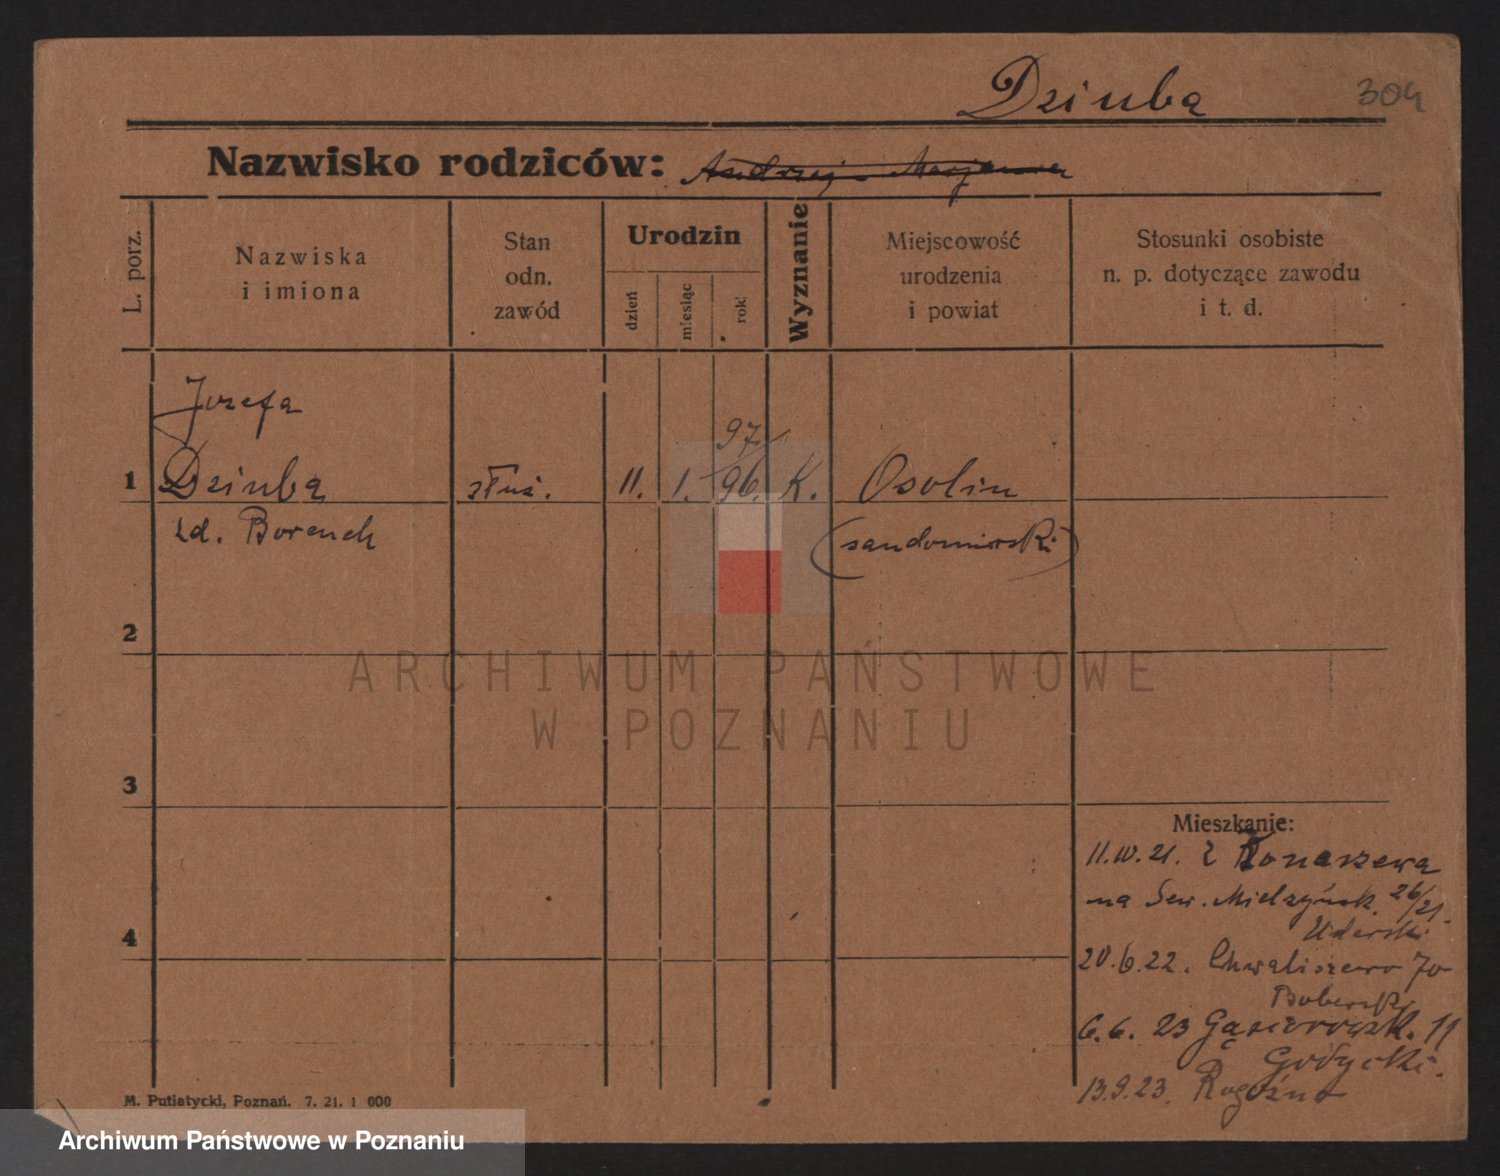 Dziuba
304
Nazwisko rodziców: Andrzej
L. porz.
Nazwiska
i imiona
Stan
odn.
zawód
Urodzin
dzień
miesiąc
rok
Wyznanie
Miejscowość
urodzenia
i powiat
Stosunki osobiste
n. p. dotyczące zawodu
i t. d.
Jozefa
97
1 Dziuba służ. 11. 1. 96. K. Osolin
zd. Borench (sandomirski)
2
3
4
Mieszkanie:
11.IV.21. z Konaszewa
na Sew. Mielzyńsk. 26/21.
Uderski
20.6.22. Chwaliszewo 70
Boberski
6.6.23 Gąsiorowsk. 11
Godycki.
13.9.23. Rogoźno
M. Putiatycki, Poznań. 7. 21. 1 000
ARCHIWUM PAŃSTWOWE
W POZNANIU
Archiwum Państwowe w Poznaniu